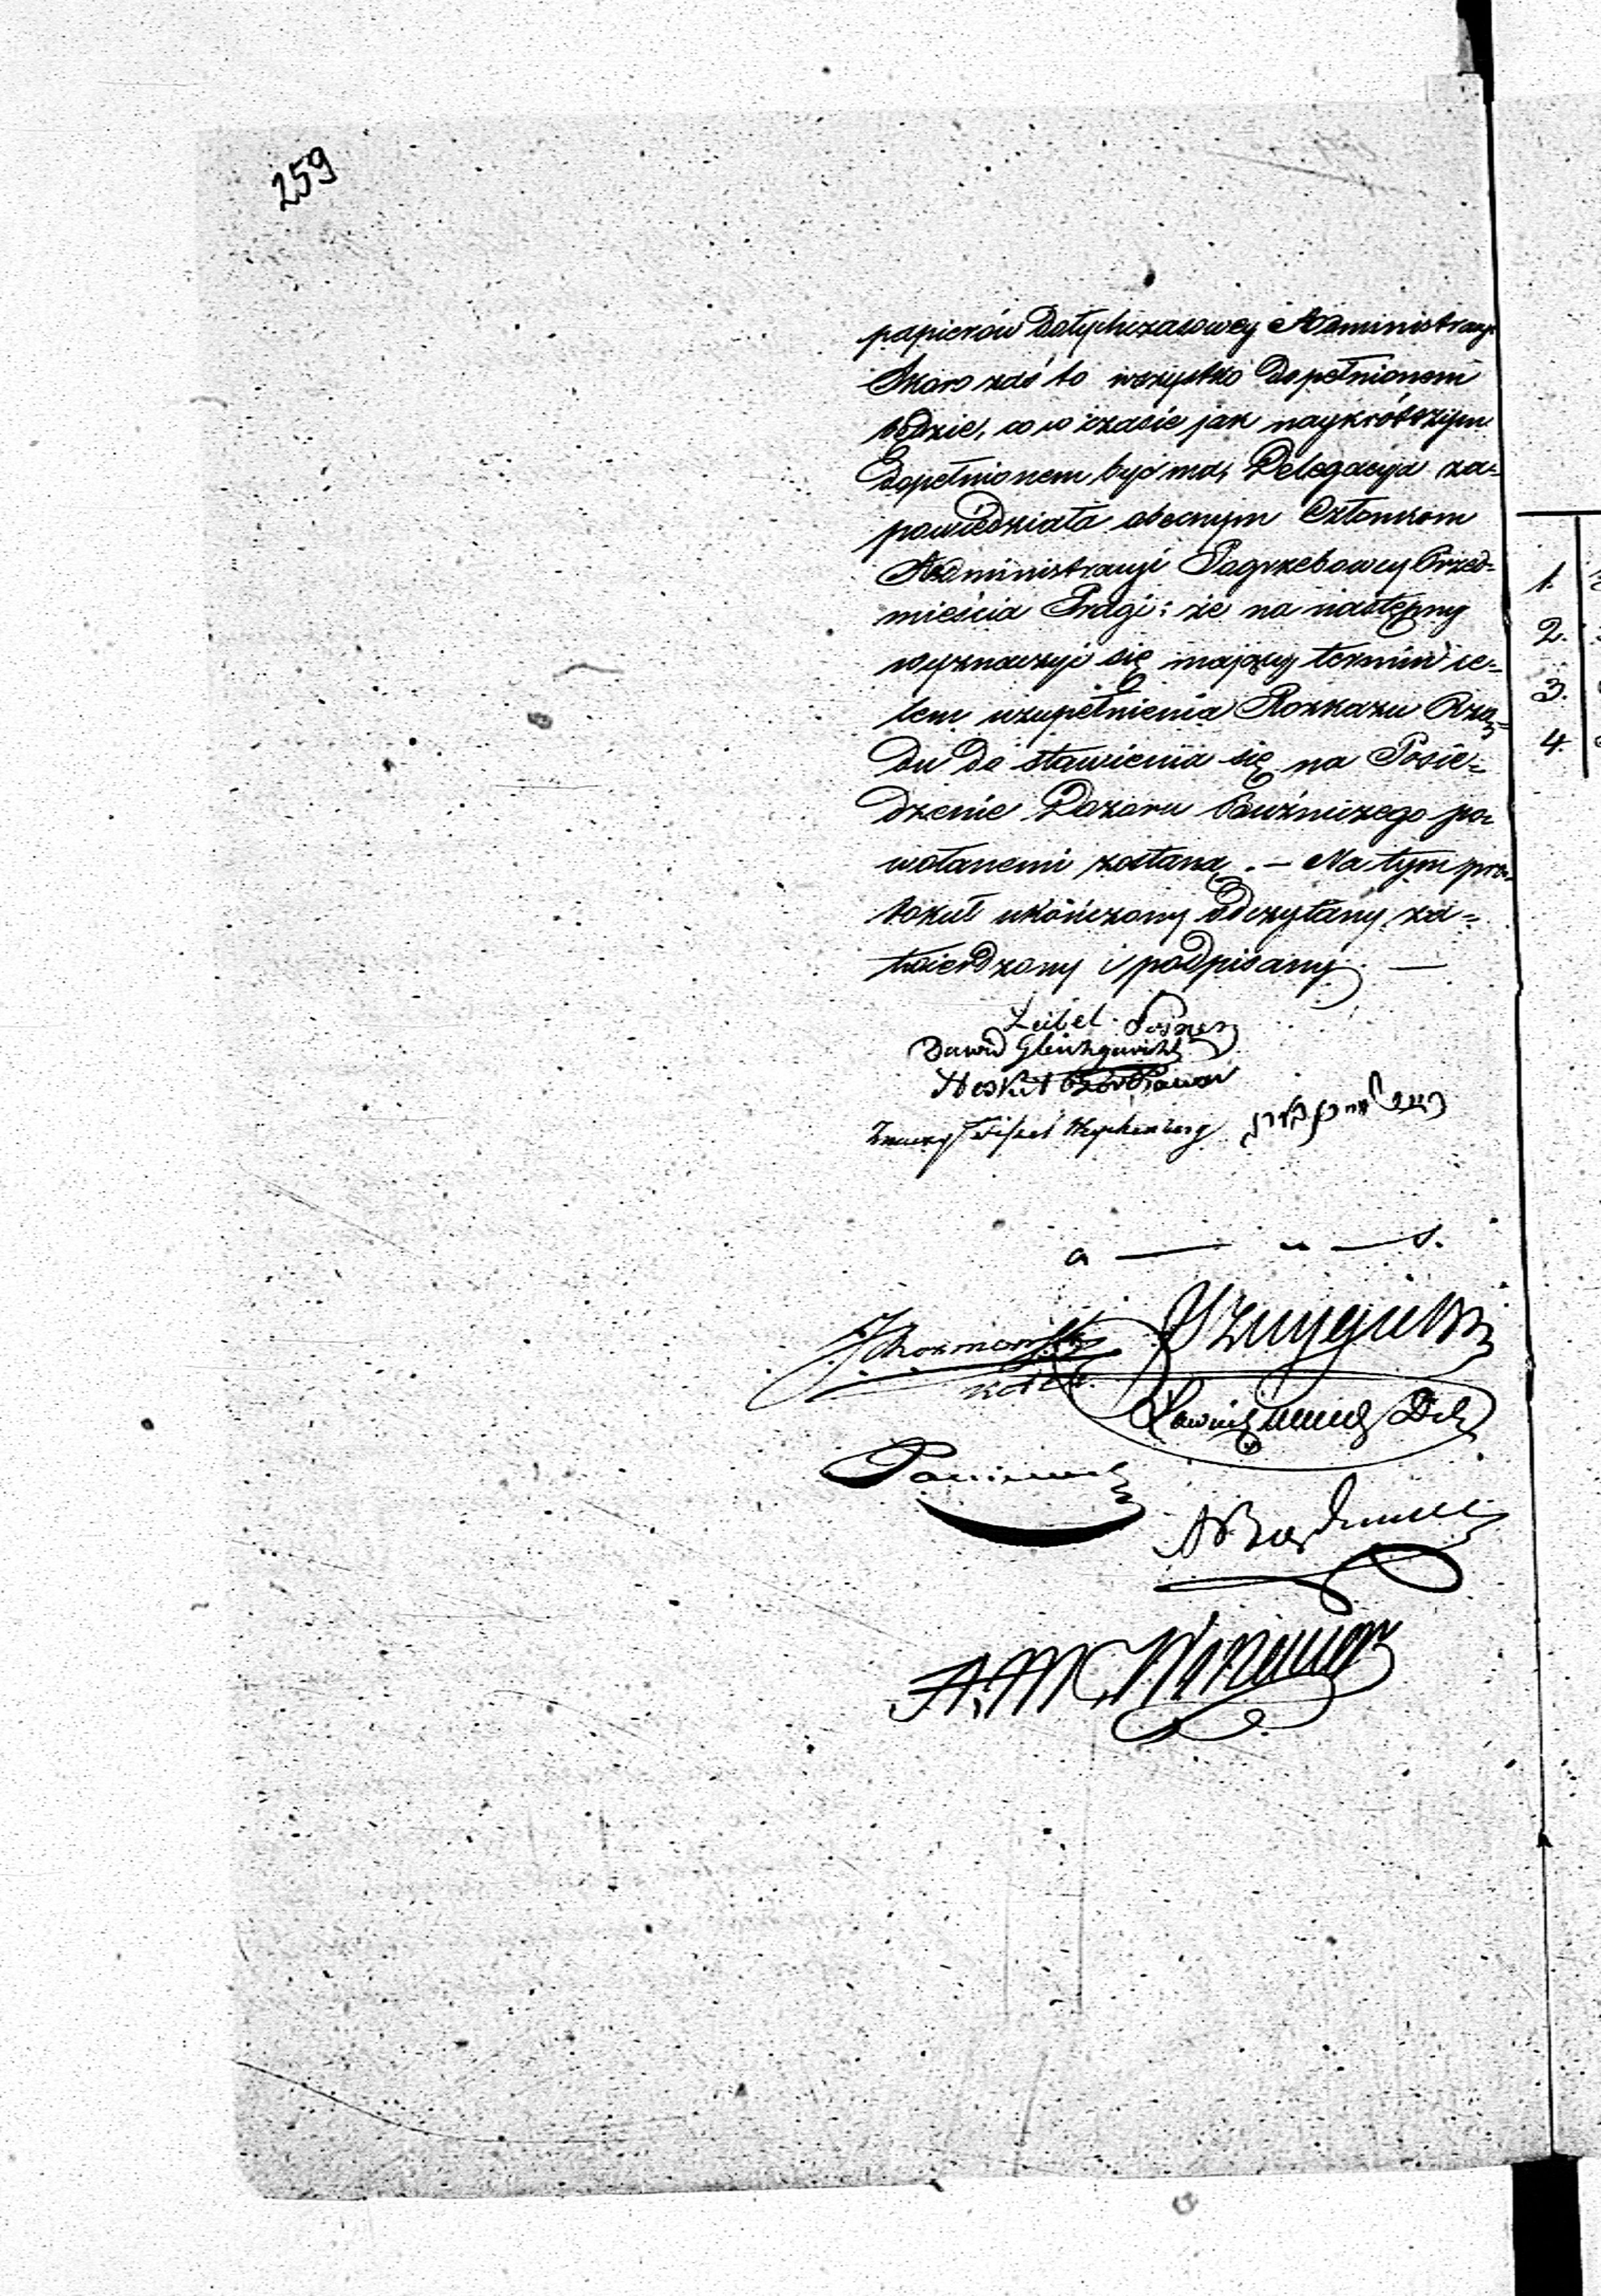 259
papierów dotychczasowey Administracyi
Skoro zaś to wszystko dopełnionem
będzie, co w czasie jak naykrótszym
dopełnionem być ma, Delegacya za=
powiedziała obecnym Członkom
Administracyi Pogrzebowey Przed=
mieścia Pragi: że na następny
wyznaczyć się mający termin ce=
lem uzupełnienia Rozkazu Rzą=
du do stawienia się na Posie=
dzenie Dozoru Bużniczego po=
wołanemi zostaną. — Na tym pro=
tokuł ukończony odczytany za=
twierdzony i podpisany. —
Leibel Posner
Dawid
Heskel
a — u — s.
A.M.
1.
2.
3.
4.